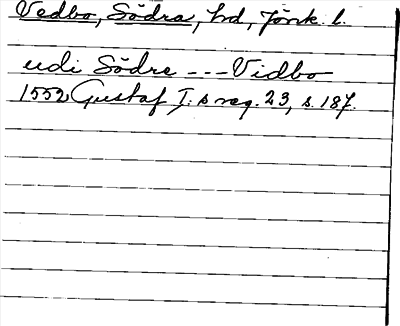 Vedbo, Södra, hd, Jönk. l.
udi Södre --- Vidbo
1552 Gustaf I:s reg. 23, s. 187.